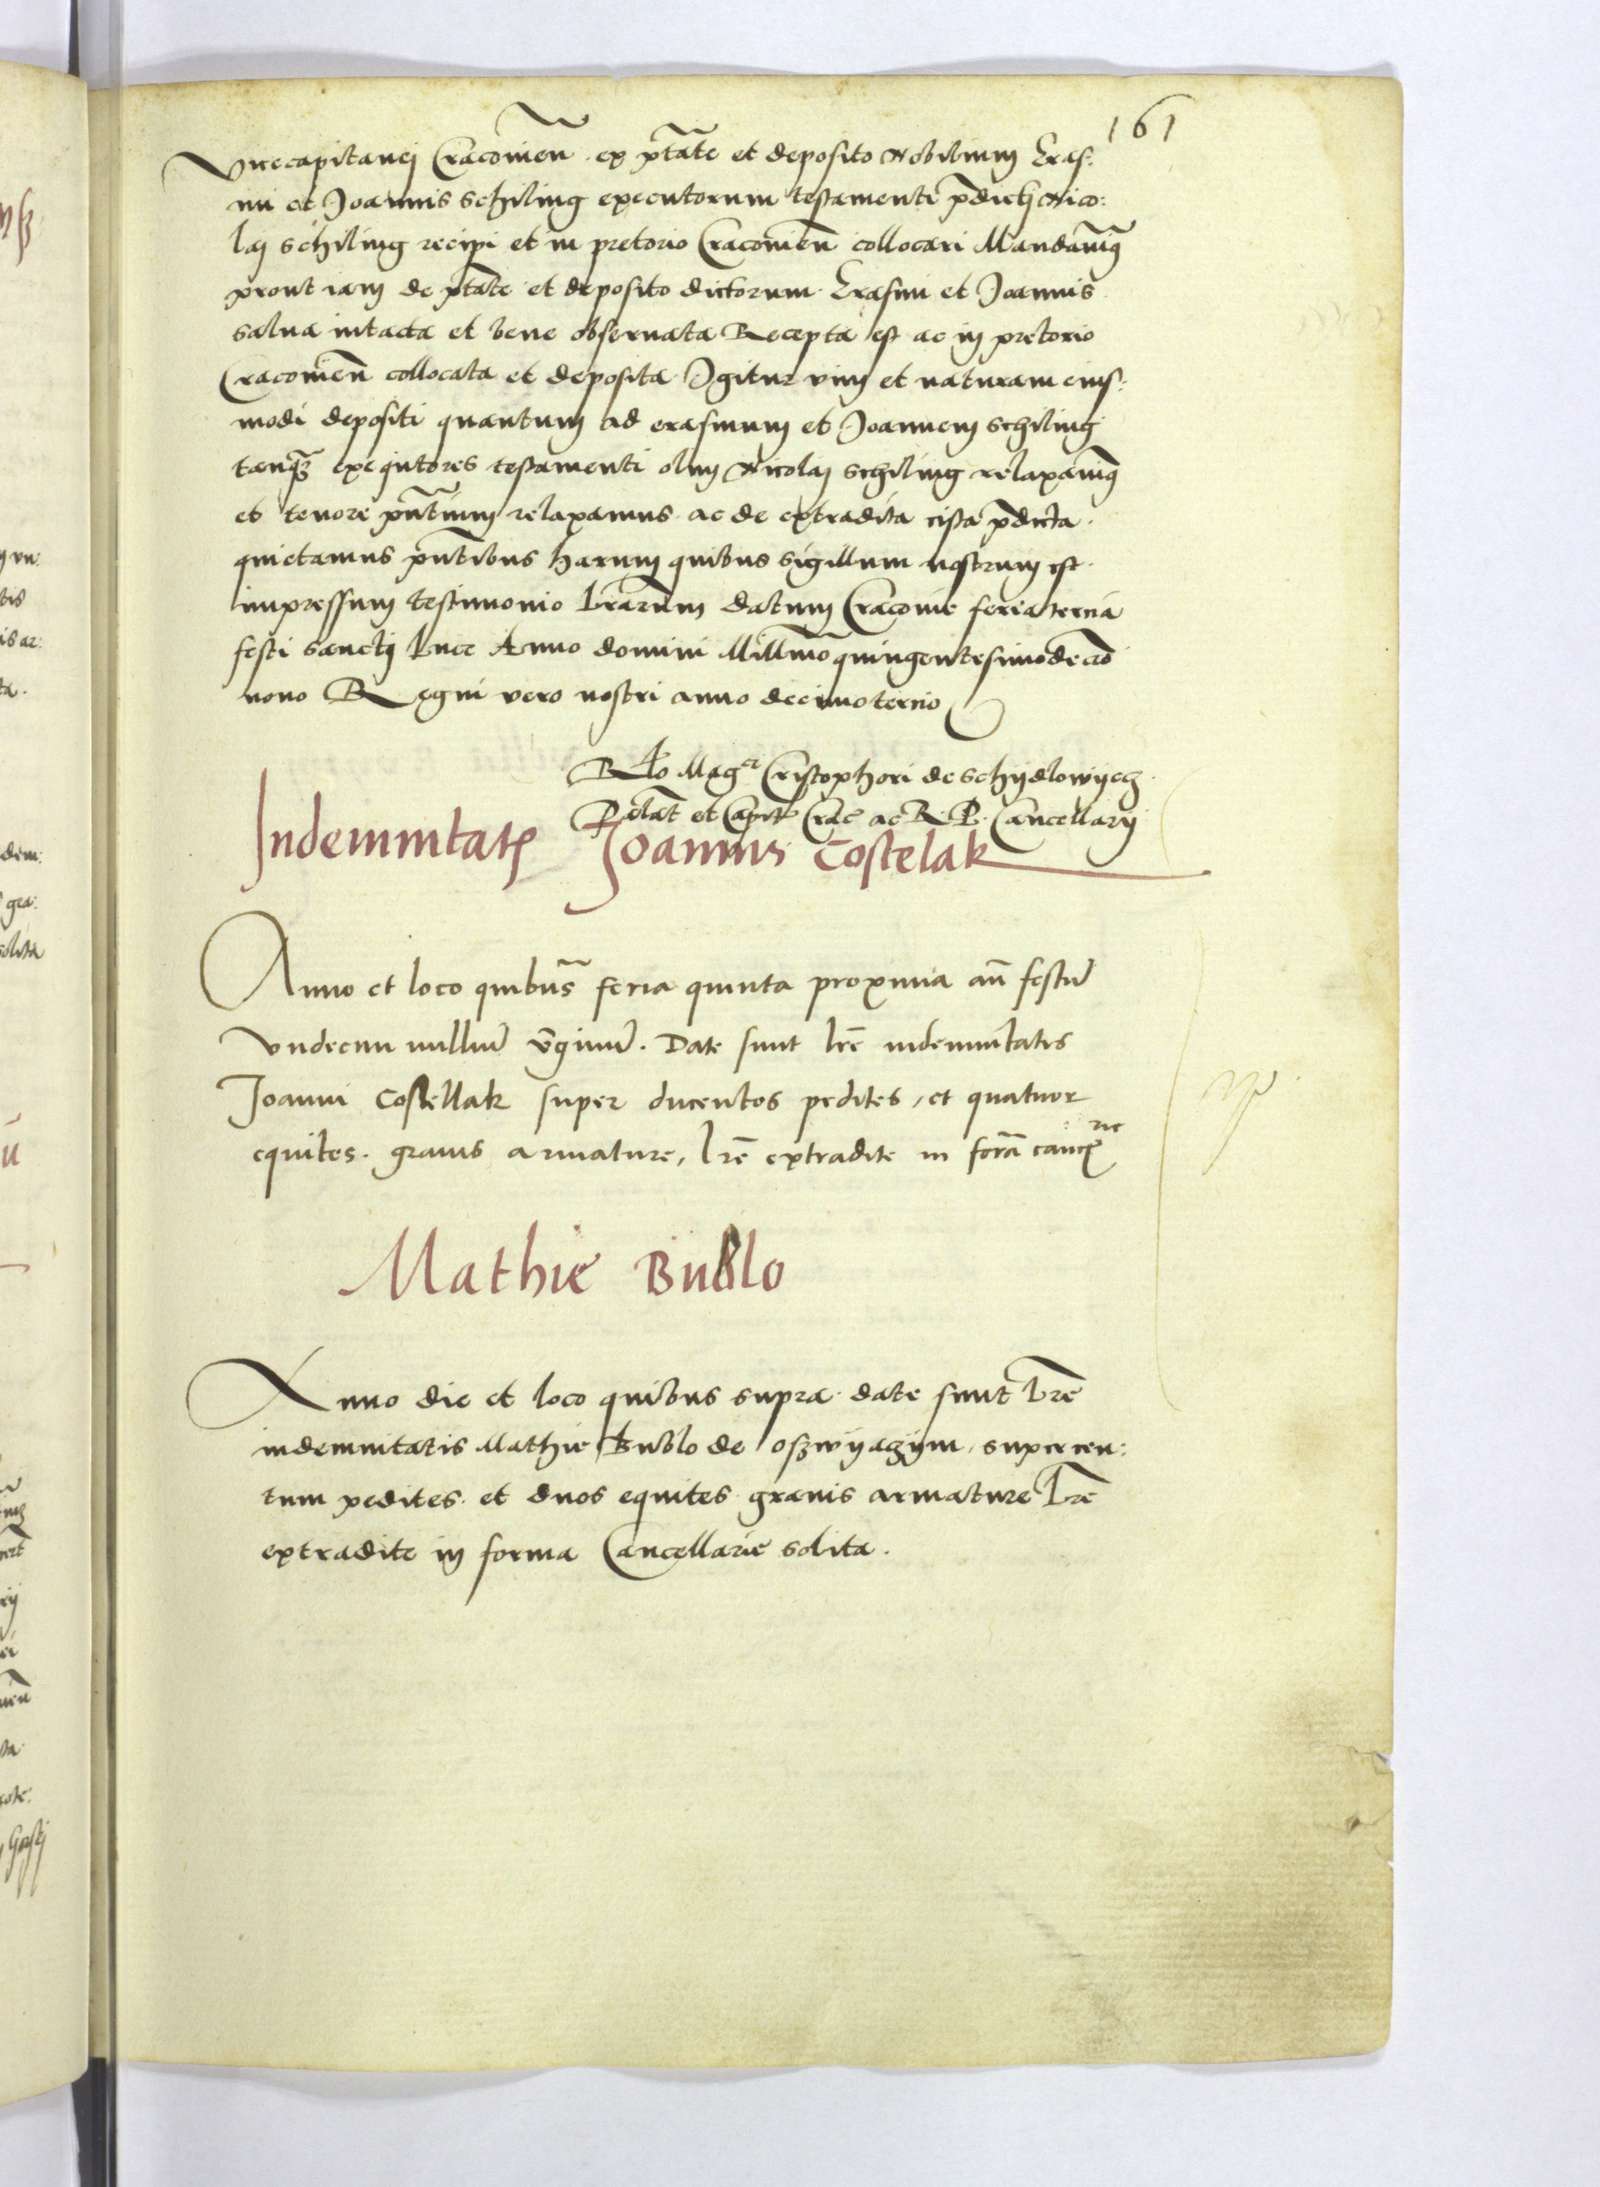 161
Vicecapitanej Cracovien̄ ex p̄tāte et deposito Nobilium Eras:
mi et Joannis schiling executorum testamenti p̄dictj Nico:
laj schiling recipi et in pretorio Cracovien̄ collocari Mandavimꝰ
prout iam de p̄tāte et deposito dictorum Erasmi et Joannis
salva intacta et bene observata Recepta est ac in pretorio
Cracovien̄ collocata et deposita Igitur vim et naturam eius:
modi depositi quantum ad erasmum et Joannem schiling
tanqꝫ exequtores testamenti olim Nicolaj schiling relaxavimꝰ
et tenore p̄ntium relaxamus ac de extradita cista p̄dicta
quietamus p̄ntibus harum quibus sigillum nostrum est
impressum testimonio l̄rarum datum Cracovie feria tercia
festi sanctj Luce Anno domini Mill̄mo quingentesimo decio
nono Regni vero nostri anno decimotercio
Rl̄o Mag^ci Cristophori de schydlowyecz
Palat̄ et Capit̄ Crac̄ ac R. P. Cancellarij
Indemnitatꝭ Joannis Costelak
Anno et loco quibus̄ feria quinta proxima an̄ festū
vndecim milliū v̄ginū. Date sunt l̄re indemnitatis
Joanni Costellak super ducentos pedites, et quatuor
equites. gravis armature, l̄re extradite in form̄a canc
Mathie Bublo
Anno die et loco quibus supra date sunt l̄re
indemnitatis Mathie Bublo de oszwyaczym super cen:
tum pedites et duos equites gravis armature L̄re
extradite in forma Cancellarie solita.